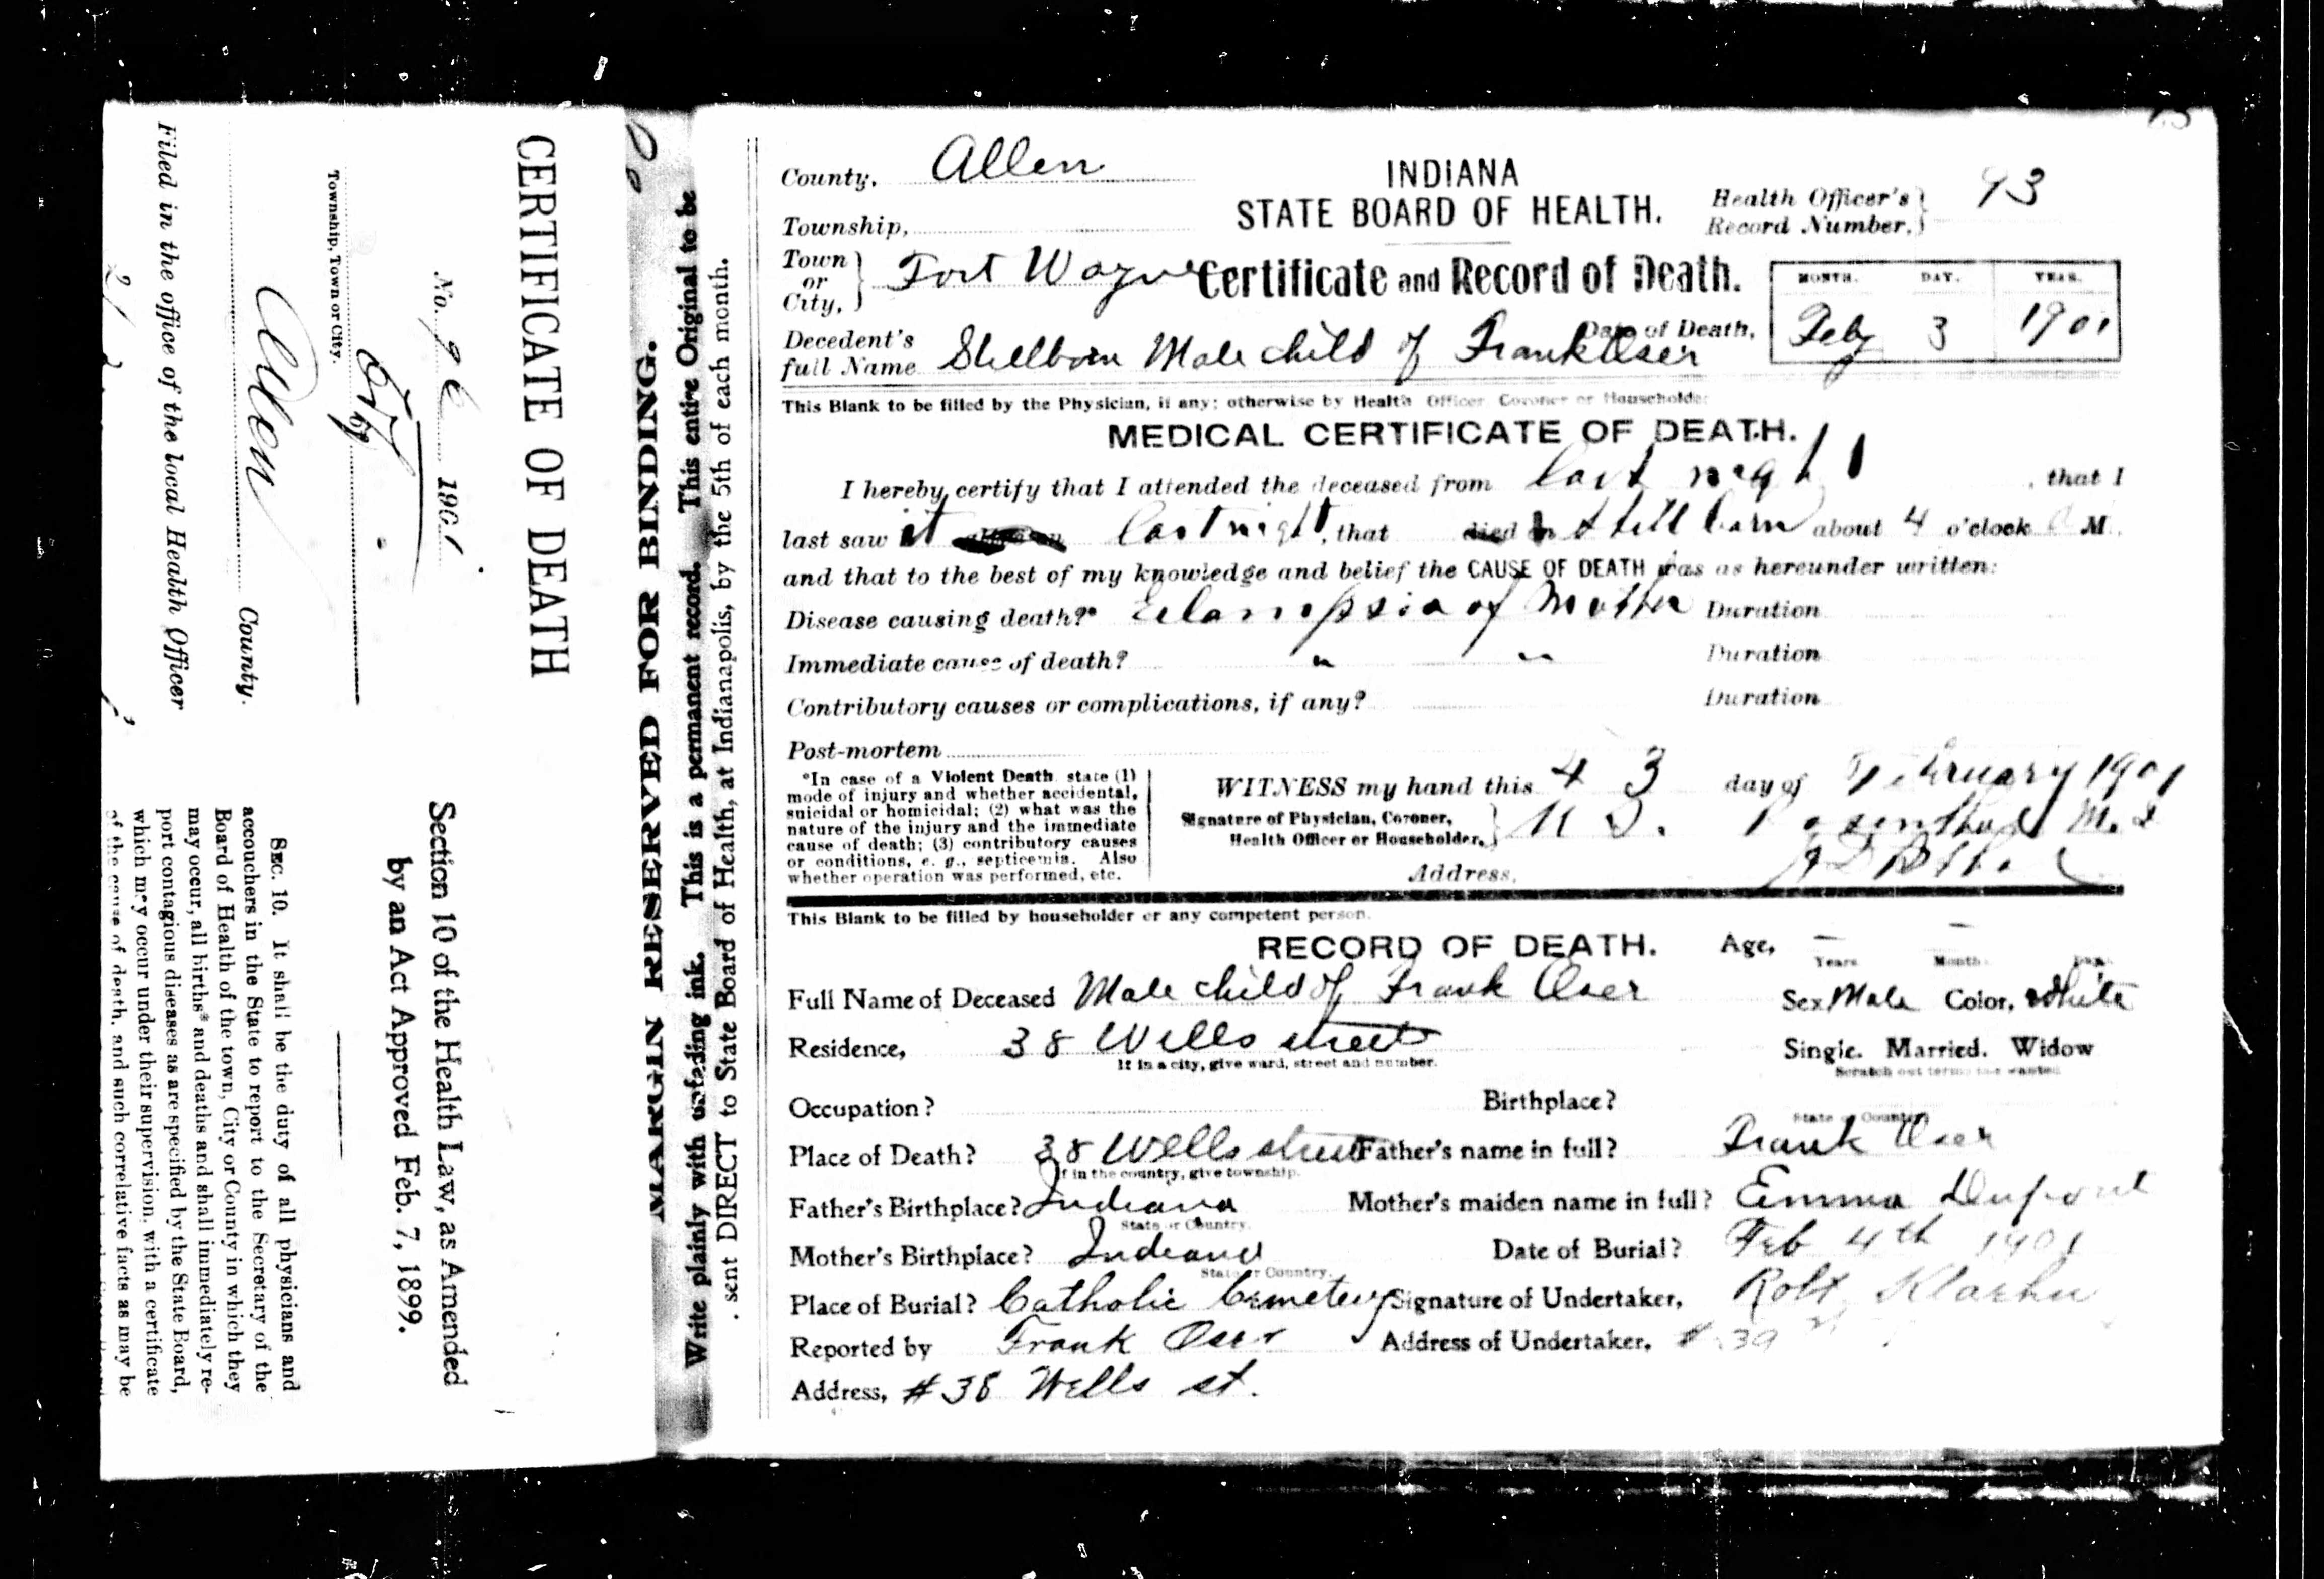 CERTIFICATE OF DEATH
No. 1901
Township, Town or City.
Allen County.
Filed in the office of the local Health Officer
Section 10 of the Health Law, as Amended
by an Act Approved Feb. 7, 1899.
SEC. 10. It shall be the duty of all physicians and
accouchers in the State to report to the Secretary of the
Board of Health of the town, City or County in which they
may occur, all births* and deaths and shall immediately re-
port contagious diseases as are specified by the State Board,
which may occur under their supervision, with a certificate
of the cause of death, and such correlative facts as may be
MARGIN RESERVED FOR BINDING.
Write plainly with unfading ink. This is a permanent record. This entire Original to be
sent DIRECT to State Board of Health, at Indianapolis, by the 5th of each month.
County, Allen
INDIANA
STATE BOARD OF HEALTH.
Health Officer's
Record Number, 93
Township,
Town or City, Fort Wayne
Certificate and Record of Death.
MONTH. DAY. YEAR.
Date of Death, Feby 3 1901
Decedent's full Name Stillborn Male child of Frank Oser
This Blank to be filled by the Physician, if any; otherwise by Health Officer Coroner or Householder
MEDICAL CERTIFICATE OF DEATH.
I hereby certify that I attended the deceased from last night, that I
last saw it last night, that died in still born about 4 o'clock M.
and that to the best of my knowledge and belief the CAUSE OF DEATH was as hereunder written:
Disease causing death?* Eclampsia of Mother Duration
Immediate cause of death? " " Duration
Contributory causes or complications, if any? Duration
Post-mortem
*In case of a Violent Death state (1)
mode of injury and whether accidental,
suicidal or homicidal; (2) what was the
nature of the injury and the immediate
cause of death; (3) contributory causes
or conditions, e. g., septicemia. Also
whether operation was performed, etc.
WITNESS my hand this 4 3 day of February 1901
Signature of Physician, Coroner,
Health Officer or Householder, Rosenthal M.D
Address,
This Blank to be filled by householder or any competent person.
RECORD OF DEATH.
Age, – –
Years Months Days
Full Name of Deceased Male child of Frank Oser
Sex Male Color, White
Residence, 38 Wells street
If in a city, give ward, street and number.
Single. Married. Widow
Scratch out terms not wanted
Occupation?
Birthplace?
State or Country
Place of Death? 38 Wells street
If in the country, give township.
Father's name in full? Frank Oser
Father's Birthplace? Indiana
State or Country.
Mother's maiden name in full? Emma Dupont
Mother's Birthplace? Indiana
State or Country.
Date of Burial? Feb 4th 1901
Place of Burial? Catholic Cemetery
Signature of Undertaker, Robt Klaehn
Reported by Frank Oser
Address of Undertaker, # 39
Address, # 38 Wells st.